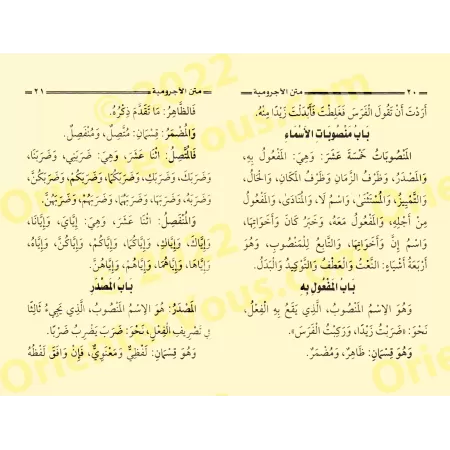 ٢٠ متن الأجرومية
أَرَدْتَ أَنْ تَقُولَ الْفَرَسَ فَغَلِطْتَ فَأَبْدَلْتَ زَيْدًا مِنْهُ.
بَابُ مَنْصُوبَاتِ الأَسْمَاءِ
الْمَنْصُوبَاتُ خَمْسَةَ عَشَرَ، وَهِيَ: الْمَفْعُولُ بِهِ،
وَالْمَصْدَرُ، وَظَرْفُ الزَّمَانِ وَظَرْفُ الْمَكَانِ، وَالْحَالُ،
وَالتَّمْيِيزُ، وَالْمُسْتَثْنَى، وَاسْمُ لَا، وَالْمُنَادَى، وَالْمَفْعُولُ
مِنْ أَجْلِهِ، وَالْمَفْعُولُ مَعَهُ، وَخَبَرُ كَانَ وَأَخَوَاتِهَا،
وَاسْمُ إِنَّ وَأَخَوَاتِهَا، وَالتَّابِعُ لِلْمَنْصُوبِ، وَهُوَ
أَرْبَعَةُ أَشْيَاءَ: النَّعْتُ وَالْعَطْفُ وَالتَّوْكِيدُ وَالْبَدَلُ.
بَابُ الْمَفْعُولِ بِهِ
وَهُوَ الِاسْمُ الْمَنْصُوبُ، الَّذِي يَقَعُ بِهِ الْفِعْلُ،
نَحْوُ: «ضَرَبْتُ زَيْدًا، وَرَكِبْتُ الْفَرَسَ».
وَهُوَ قِسْمَانِ: ظَاهِرٌ، وَمُضْمَرٌ.
متن الأجرومية ٢١
فَالظَّاهِرُ: مَا تَقَدَّمَ ذِكْرُهُ.
وَالْمُضْمَرُ: قِسْمَانِ: مُتَّصِلٌ، وَمُنْفَصِلٌ.
فَالْمُتَّصِلُ: اثْنَا عَشَرَ، وَهِيَ: ضَرَبَنِي، وَضَرَبَنَا،
وَضَرَبَكَ، وَضَرَبَكِ، وَضَرَبَكُمَا، وَضَرَبَكُمْ، وَضَرَبَكُنَّ،
وَضَرَبَهُ، وَضَرَبَهَا، وَضَرَبَهُمَا، وَضَرَبَهُمْ، وَضَرَبَهُنَّ.
وَالْمُنْفَصِلُ: اثْنَا عَشَرَ، وَهِيَ: إِيَّايَ، وَإِيَّانَا،
وَإِيَّاكَ، وَإِيَّاكِ، وَإِيَّاكُمَا، وَإِيَّاكُمْ، وَإِيَّاكُنَّ، وَإِيَّاهُ،
وَإِيَّاهَا، وَإِيَّاهُمَا، وَإِيَّاهُمْ، وَإِيَّاهُنَّ.
بَابُ الْمَصْدَرِ
الْمَصْدَرُ: هُوَ الِاسْمُ الْمَنْصُوبُ، الَّذِي يَجِيءُ ثَالِثًا
فِي تَصْرِيفِ الْفِعْلِ، نَحْوُ: ضَرَبَ يَضْرِبُ ضَرْبًا.
وَهُوَ قِسْمَانِ: لَفْظِيٌّ وَمَعْنَوِيٌّ، فَإِنْ وَافَقَ لَفْظُهُ